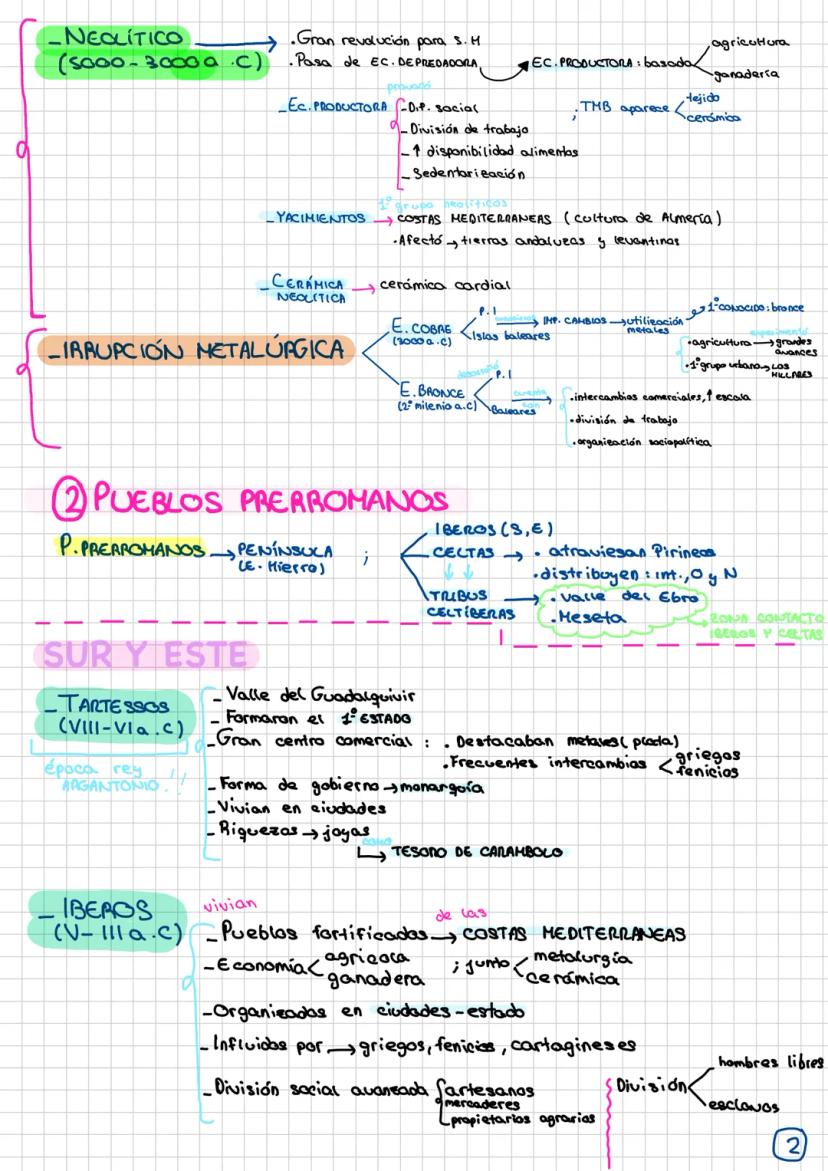 _NEOLÍTICO
(5000-3000 a.C)
.Gran revolución para S.H
.Pasa de EC.DEPREDADORA
EC.PRODUCTORA: basada
agricultura
ganadería
provocó
_EC.PRODUCTORA
-Dif. social
-División de trabajo
-↑ disponibilidad alimentos
-Sedentarización
;TMB aparece
tejido
cerámica
1º grupo neolíticos
_YACIMIENTOS → COSTAS MEDITERRANEAS (cultura de Almería)
.Afectó → tierras andaluzas y levantinas
_CERÁMICA
NEOLÍTICA
→ cerámica cardial
_IRRUPCIÓN METALÚRGICA
E. COBRE
(3000 a.C)
P.I
Islas baleares
IMP. CAMBIOS → utilización
metales
1º CONOCIDO: bronce
experimentó
.agricultura → grandes
avances
.1º grupo urbano → LOS
MILLARES
E. BRONCE
(2º milenio a.C)
desarrolló
P.I
Baleares
cuenta
con
.intercambios comerciales, ↑ escala
.división de trabajo
.organización sociopolítica
② PUEBLOS PRERROMANOS
P.PRERROMANOS → PENÍNSULA
(E. Hierro)
;
IBEROS (S,E)
CELTAS → . atraviesan Pirineos
.distribuyen: int., O y N
↓ ↓
TRIBUS
CELTÍBERAS
→ . Valle del Ebro
.Meseta
→ ZONA CONTACTO
IBEROS Y CELTAS
SUR Y ESTE
_TARTESSOS
(VIII-VI a.C)
época rey
ARGANTONIO !!
- Valle del Guadalquivir
- Formaron el 1º ESTADO
-Gran centro comercial : . Destacaban metales (plata)
.Frecuentes intercambios
griegos
fenicios
-Forma de gobierno → monarquía
-Vivian en ciudades
-Riquezas → joyas
como
TESORO DE CARAMBOLO
_ IBEROS
(V-III a.C)
vivian
de las
-Pueblos fortificados → COSTAS MEDITERRANEAS
-Economía
agrícola
ganadera
; junto
metalurgia
cerámica
-Organizados en ciudades-estado
-Influidos por → griegos, fenicios, cartagineses
-División social avanzada
artesanos
mercaderes
propietarios agrarios
División
hombres libres
esclavos
2